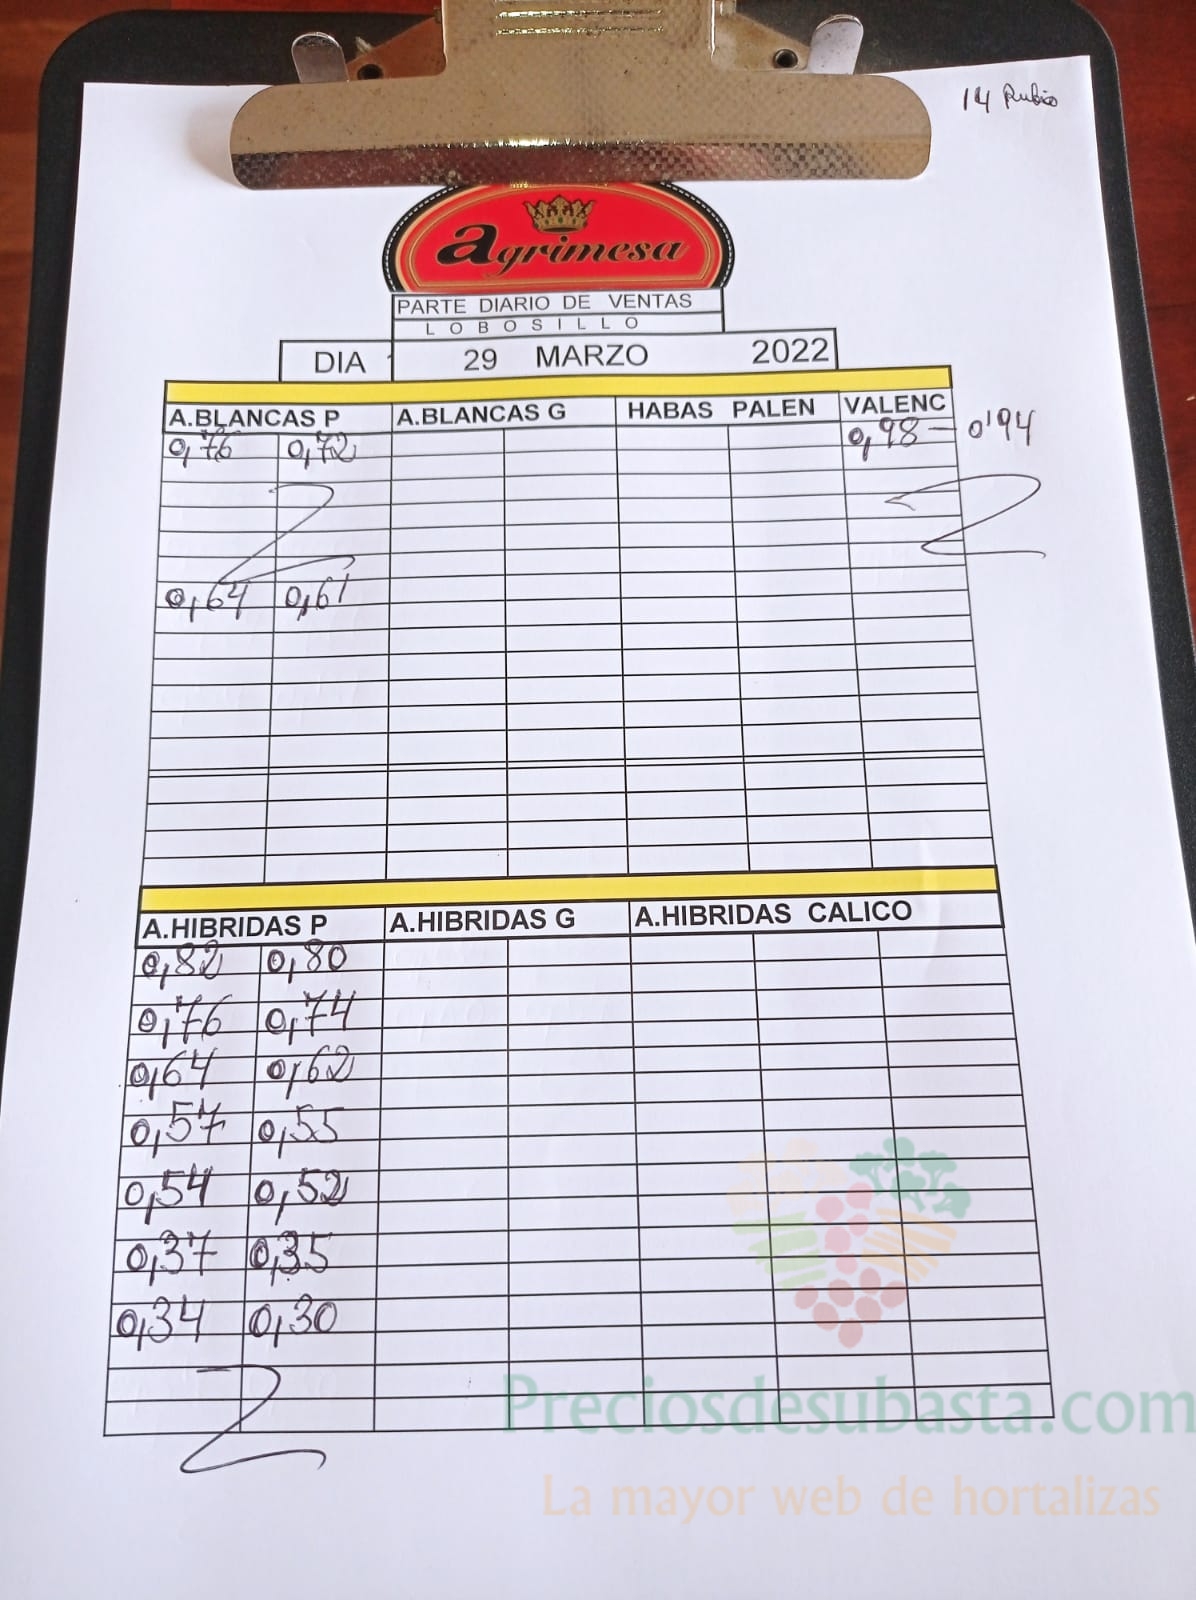 14 Rubio
agrimesa
PARTE DIARIO DE VENTAS
LOBOSILLO
DIA 29 MARZO 2022
A.BLANCAS P A.BLANCAS G HABAS PALEN VALENC
0,76 0,72 0,98 - 0'94
0,64 0,61
A.HIBRIDAS P A.HIBRIDAS G A.HIBRIDAS CALICO
0,82 0,80
0,76 0,74
0,64 0,62
0,57 0,55
0,54 0,52
0,37 0,35
0,34 0,30
Preciosdesubasta.com
La mayor web de hortalizas